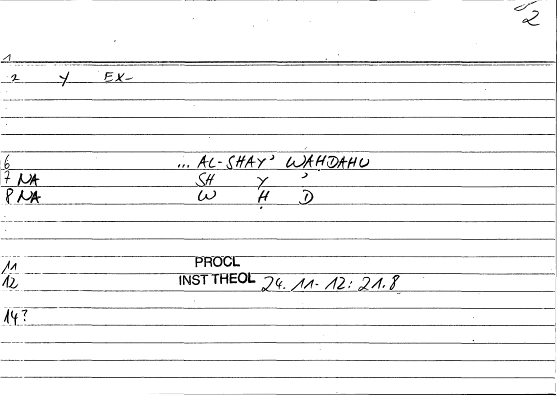 2
1
2 Y EX-
6 ... AL-SHAY' WAḤDAHU
7 NA SH Y '
8 NA W Ḥ D
11 PROCL
12 INST THEOL 24. 11-12: 21.8
14?